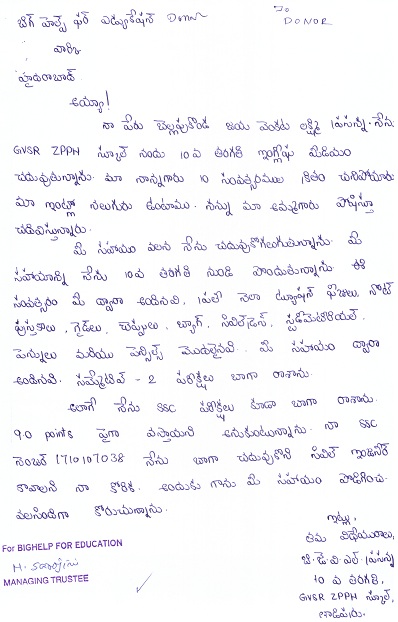 బిగ్ హెల్ప్ ఫర్ ఎడ్యుకేషన్ Donor
To
DONOR
వారికి
హైదరాబాద్
అయ్యా!
నా పేరు బెల్లపుకొండ జయ వెంకట లక్ష్మి ప్రసన్న. నేను
GVSR ZPPH స్కూల్ నందు 10 వ తరగతి ఇంగ్లీషు మీడియం
చదువుతున్నాను. మా నాన్నగారు 10 సంవత్సరముల క్రితం చనిపోయారు
మా ఇంట్లో నలుగురు ఉంటాము. నన్ను మా అమ్మగారు పోషిస్తూ
చదివిస్తున్నారు.
మీ సహాయం వలన నేను చదువుకోగలుగుతున్నాను. మీ
సహాయాన్ని నేను 10వ తరగతి నుండి పొందుతున్నాను. ఈ
సంవత్సరం మీ ద్వారా అందినవి, ప్రతి నెలా ట్యూషన్ ఫీజులు, నోట్
పుస్తకాలు, గైడ్లు, చెప్పులు, బ్యాగ్, సివిల్‌డ్రెస్, స్టడీమెటీరియల్,
పెన్నులు మరియు పెన్సిల్స్ మొదలైనవి. మీ సహాయం ద్వారా
అందినవి. సమ్మేటివ్ - 2 పరీక్షలు బాగా రాశాను.
అలాగే నేను SSC పరీక్షలు కూడా బాగా రాశాను.
9.0 points పైగా వస్తాయని అనుకుంటున్నాను. నా SSC
నెంబర్ 1710107038 నేను బాగా చదువుకొని సివిల్ ఇంజనీర్
కావాలని నా కోరిక. అందుకు గాను మీ సహాయం పొడిగించ
వలసిందిగా కోరుచున్నాను.
ఇట్లు,
తమ విధేయురాలు,
బి.జె.వి.ఎల్.ప్రసన్న
10 వ తరగతి,
GVSR ZPPH స్కూల్,
For BIGHELP FOR EDUCATION
H. Sarojini
MANAGING TRUSTEE